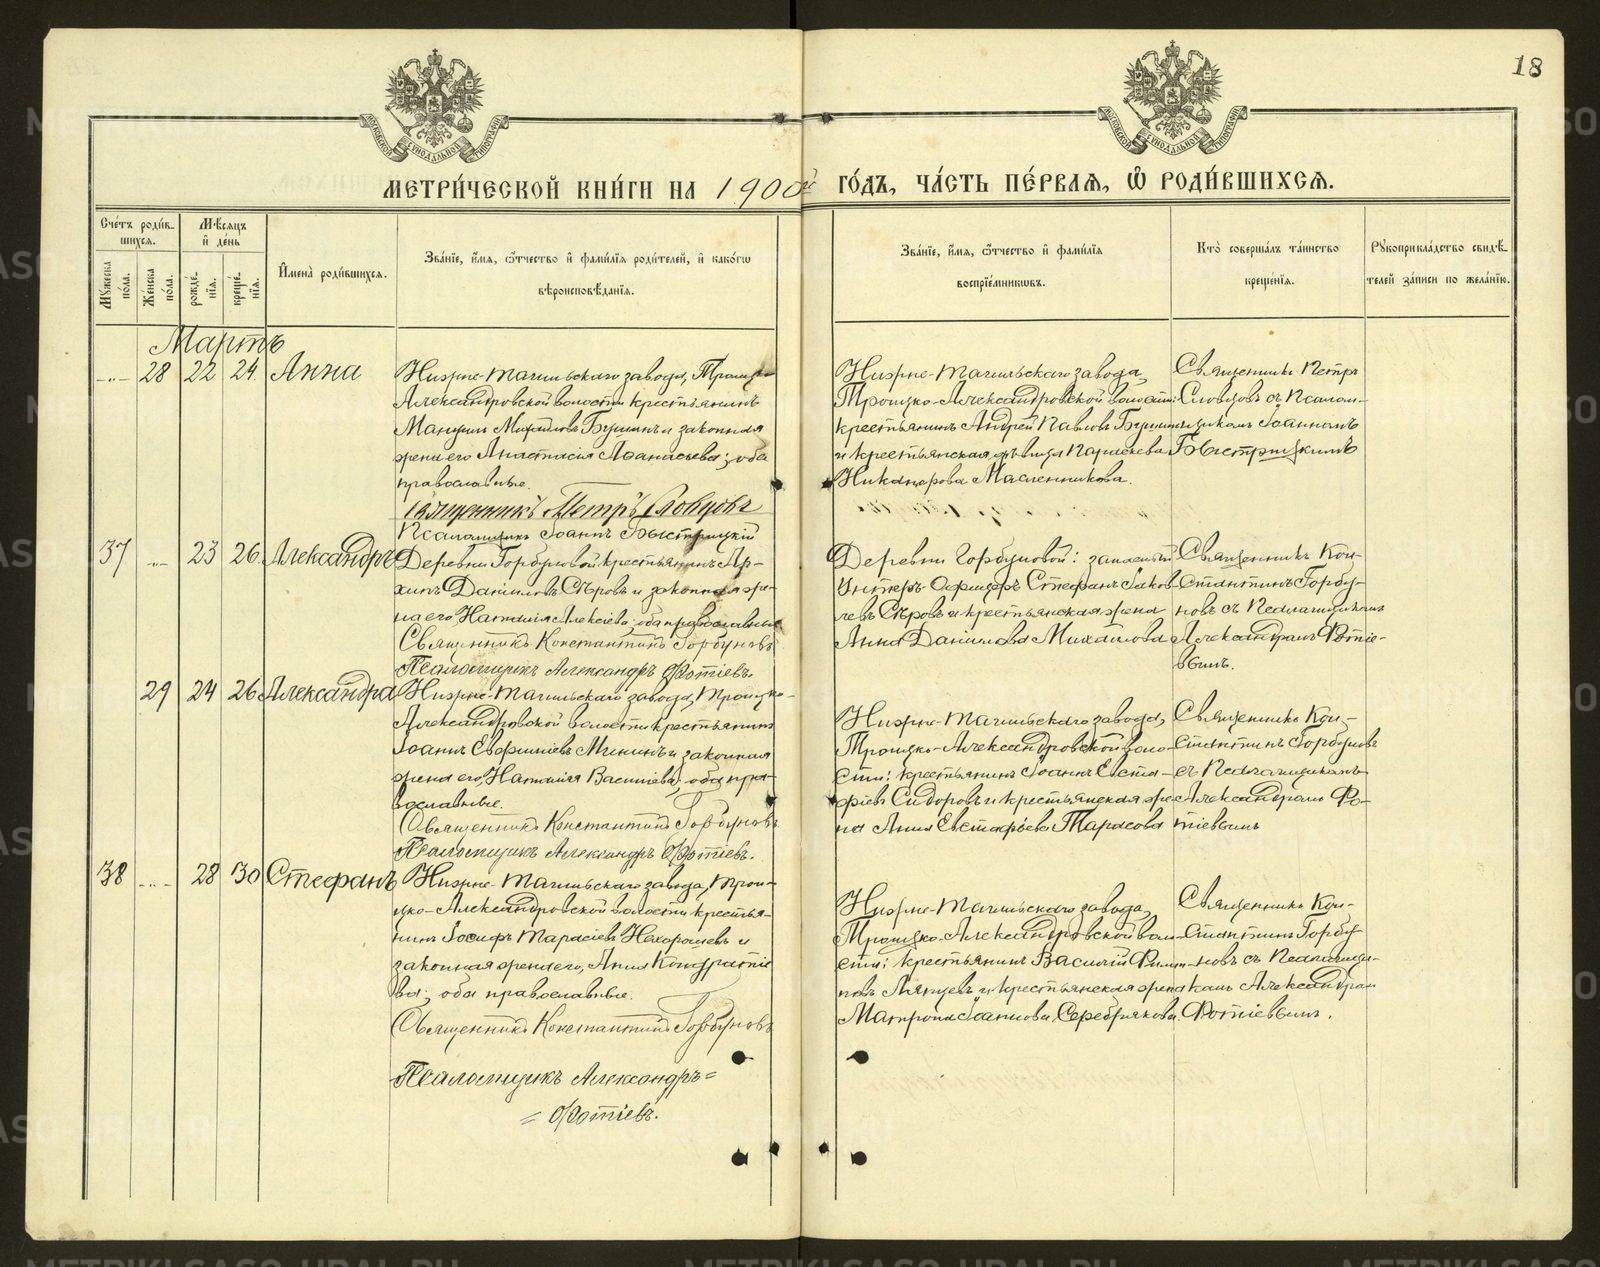 18
МОСКОВСКОЙ СѴНОДАЛЬНОЙ ТИПОГРАФІИ
МОСКОВСКОЙ СѴНОДАЛЬНОЙ ТИПОГРАФІИ
МЕТРИ́ЧЕСКОЙ КНИ́ГИ НА 1900й ГО́ДЪ, ЧА́СТЬ ПЕ́РВАѦ, Ѿ РОДИ́ВШИХСѦ.
Сче́тъ роди́в-
шихсѧ.
Мꙋ́жеска по́ла.
Же́нска по́ла.
Мѣ́сѧцъ
и҆ де́нь
рожде́-
нїѧ.
креще́-
нїѧ.
И҆мена̀ роди́вшихсѧ.
Зва́нїе, и҆́мѧ, ѻ҆́тчество и҆ фами́лїѧ роди́телей, и҆ како́гѡ
вѣроисповѣ́данїѧ.
Зва́нїе, и҆́мѧ, ѻ҆́тчество и҆ фами́лїѧ
воспрїе́мникѡвъ.
Кто̀ соверша́лъ та́инство
креще́нїѧ.
Рꙋкоприкла́дство свидѣ́-
телей за́писи по жела́нїю.
Мартъ
-"- 28 22 24 Анна
Нижне-Тагильскаго завода, Троицко-
Александровской волости крестьянинъ
Михайловъ и законная
жена его Анастасія Аѳанасьева; оба
православные.
Священникъ Петръ Словцовъ
Псаломщикъ Іоаннъ Быстрицкій
Нижне-Тагильскаго завода,
Троицко-Александровской волости:
крестьянинъ Андрей Павловъ
и крестьянская дѣвица Параскева
Никанорова Масленникова.
Священникъ Петръ
Словцовъ съ Псалом-
щикомъ Іоанномъ
Быстрицкимъ
37 -"- 23 26 Александръ
Деревни Горбуновой: крестьянинъ Ар-
хипъ Даніиловъ Сѣровъ и законная же-
на его Наталія Алексіева; оба православные
Священникъ Константинъ Горбуновъ
Псаломщикъ Александръ Фотіевъ.
Деревни Горбуновой: запасный
Унтеръ-Офицеръ Стефанъ Іаков-
левъ Сѣровъ и крестьянская жена
Анна Данилова Михайлова
Священникъ Кон-
стантинъ Горбу-
новъ съ Псаломщикомъ
Александромъ Фотіе-
вымъ.
29 24 26 Александра
Нижне-Тагильскаго завода, Троицко-
Александровской волости крестьянинъ
Іоаннъ Евфиміевъ и законная
жена его Наталія Василіева; оба пра-
вославные.
Священникъ Константинъ Горбуновъ
Псаломщикъ Александръ Фотіевъ.
Нижне-Тагильскаго завода,
Троицко-Александровской воло-
сти: крестьянинъ Іоаннъ Евста-
фіевъ Сидоровъ и крестьянская же-
на Анна Евстафьева Тарасова
Священникъ Кон-
стантинъ Горбуновъ
съ Псаломщикомъ
Александромъ Фо-
тіевымъ
38 -"- 28 30 Стефанъ
Нижне-Тагильскаго завода, Трои-
цко-Александровской волости крестья-
нинъ Іосифъ Тарасіевъ Нехорошевъ и
законная жена его, Анна Кондратіе-
ва; оба православные.
Священникъ Константинъ Горбуновъ
Псаломщикъ Александръ=
= Фотіевъ.
Нижне-Тагильскаго завода,
Троицко-Александровской воло-
сти: крестьянинъ Василій Филип-
повъ и крестьянская жена
Матрона Іоаннова Серебрякова.
Священникъ Кон-
стантинъ Горбу-
новъ съ Псаломщи-
комъ Александромъ
Фотіевымъ.